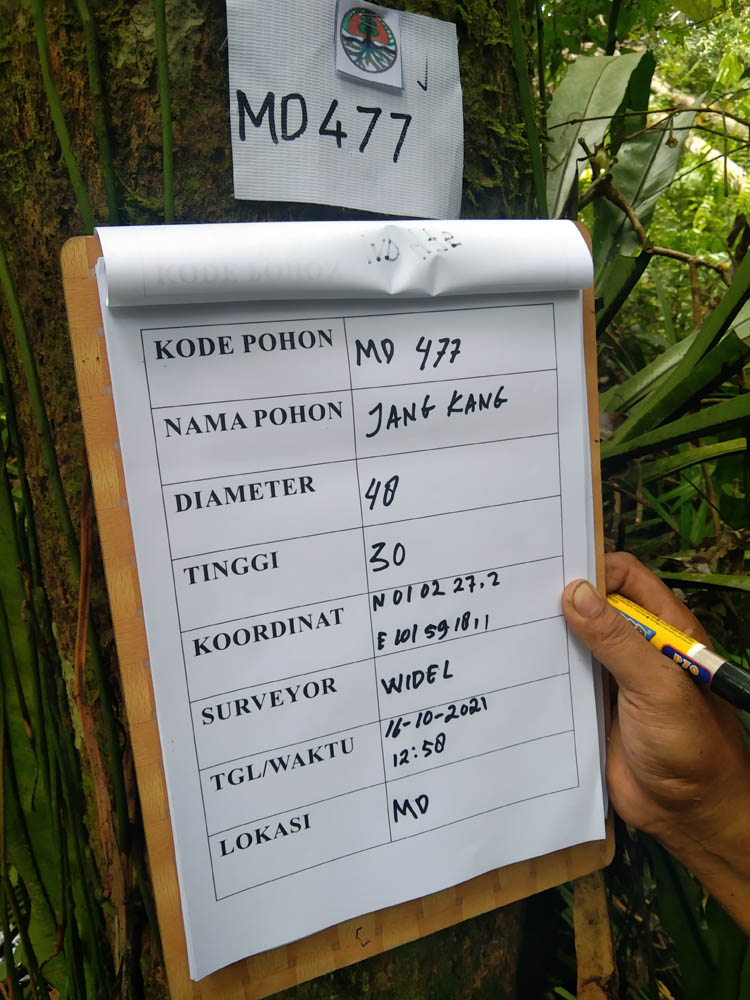 MD477
KODE POHON MD 477
NAMA POHON JANG KANG
DIAMETER 48
TINGGI 30
KOORDINAT N 01 02 27.2
E 101 59 18,1
SURVEYOR WIDEL
TGL/WAKTU 16-10-2021
12:58
LOKASI MD